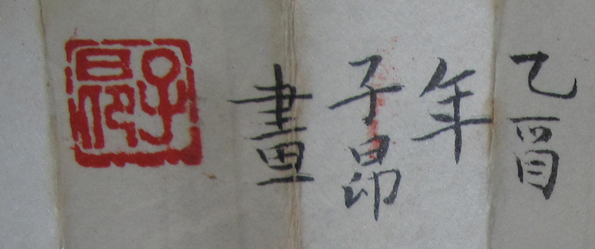 乙酉
年
子昂
畫
子昂